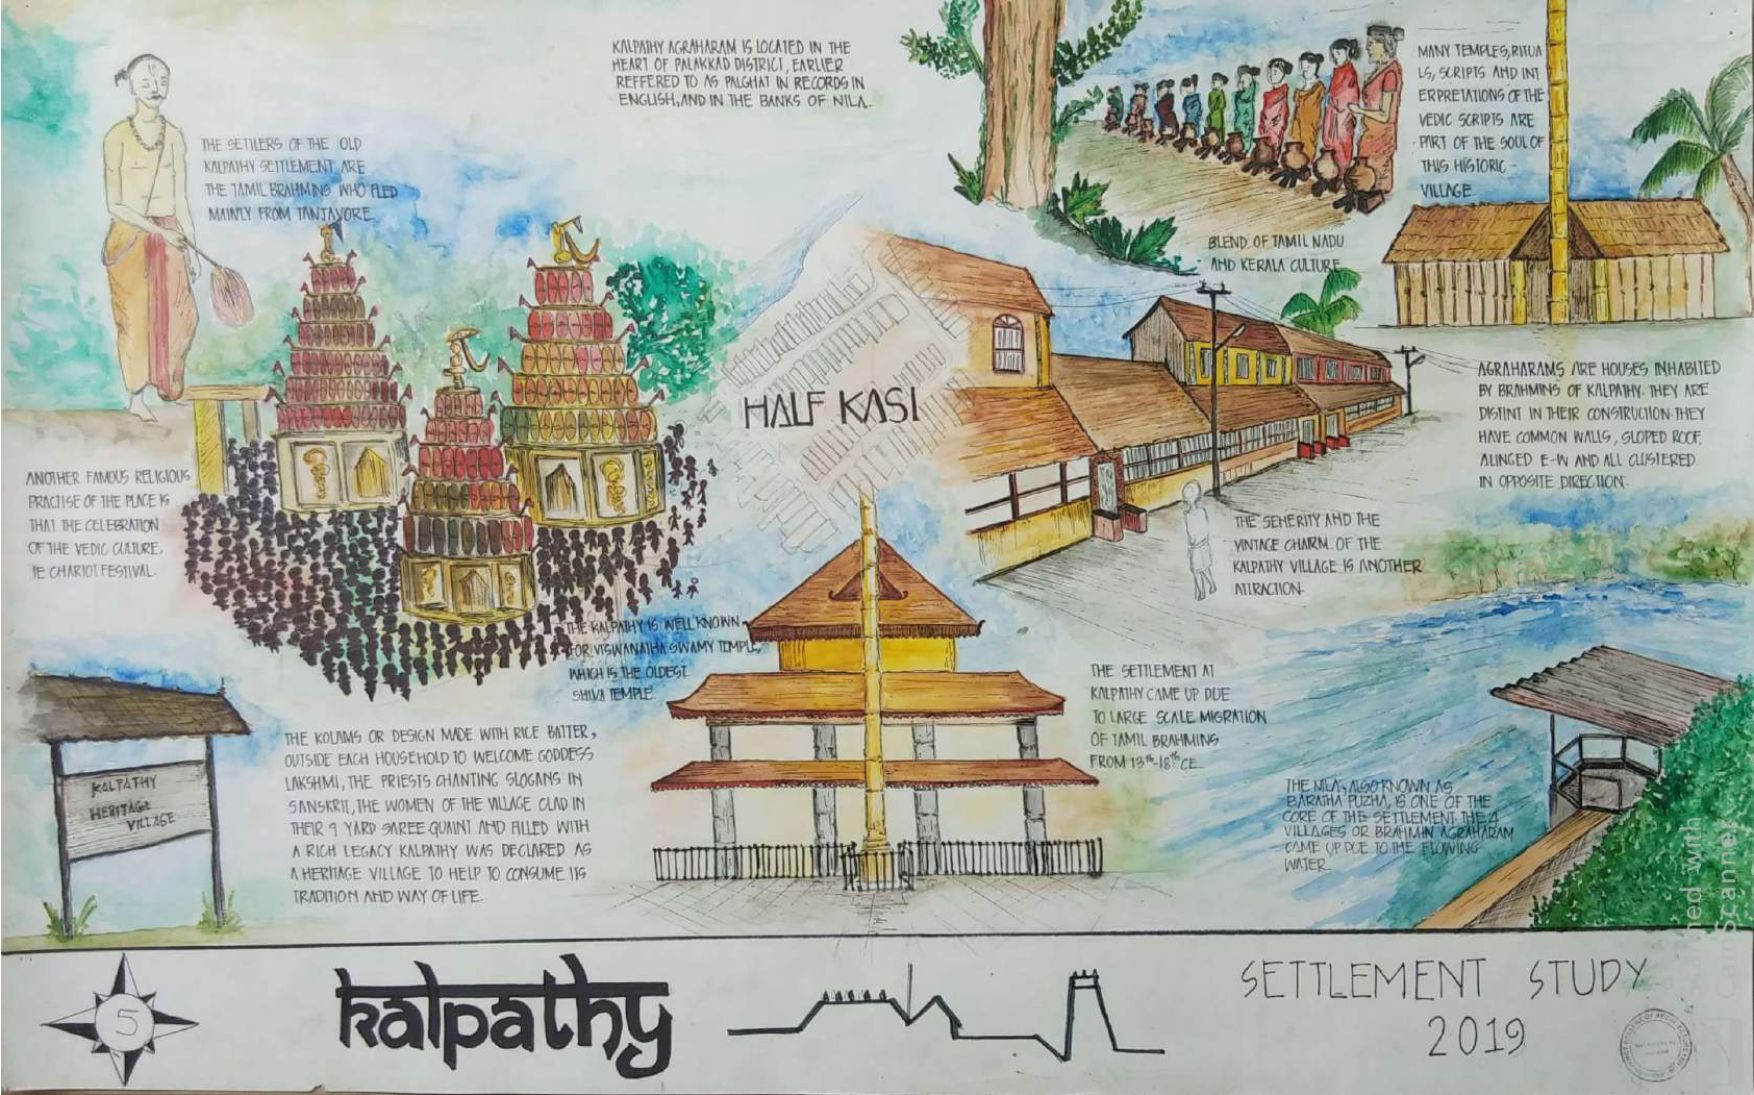 KALPATHY AGRAHARAM IS LOCATED IN THE
HEART OF PALAKKAD DISTRICT, EARLIER
REFFERED TO AS PALGHAT IN RECORDS IN
ENGLISH, AND IN THE BANKS OF NILA.
MANY TEMPLES, RITUA
LS, SCRIPTS AND INT
ERPRETATIONS OF THE
VEDIC SCRIPTS ARE
PART OF THE SOUL OF
THIS HISTORIC -
VILLAGE.
THE SETTLERS OF THE OLD
KALPATHY SETTLEMENT ARE
THE TAMIL BRAHMINS WHO FLED
MAINLY FROM TANJAVORE
BLEND OF TAMIL NADU
AND KERALA CULTURE
HALF KASI
AGRAHARAMS ARE HOUSES INHABITED
BY BRAHMINS OF KALPATHY. THEY ARE
DISTINT IN THEIR CONSTRUCTION. THEY
HAVE COMMON WALLS, SLOPED ROOF,
ALINGED E-W AND ALL CLUSTERED
IN OPPOSITE DIRECTION.
ANOTHER FAMOUS RELIGIOUS
PRACTISE OF THE PLACE IS
THAT THE CELEBRATION
OF THE VEDIC CULTURE,
IE CHARIOT FESTIVAL.
THE SENERITY AND THE
VINTAGE CHARM OF THE
KALPATHY VILLAGE IS ANOTHER
ATTRACTION.
THE KALPATHY IS WELL KNOWN
FOR VISWANATHA SWAMY TEMPLE,
WHICH IS THE OLDEST
SHIVA TEMPLE.
THE SETTLEMENT AT
KALPATHY CAME UP DUE
TO LARGE SCALE MIGRATION
OF TAMIL BRAHMINS
FROM 13th-18th CE.
KALPATHY
HERITAGE
VILLAGE
THE KOLAMS OR DESIGN MADE WITH RICE BATTER,
OUTSIDE EACH HOUSEHOLD TO WELCOME GODDESS
LAKSHMI, THE PRIESTS CHANTING SLOGANS IN
SANSKRIT, THE WOMEN OF THE VILLAGE CLAD IN
THEIR 9 YARD SAREE QUAINT AND FILLED WITH
A RICH LEGACY KALPATHY WAS DECLARED AS
A HERITAGE VILLAGE TO HELP TO CONSUME ITS
TRADITION AND WAY OF LIFE.
THE NILA, ALSO KNOWN AS
BARATHA PUZHA, IS ONE OF THE
CORE OF THE SETTLEMENT THE 4
VILLAGES OR BRAHMIN AGRAHARAM
CAME UP DUE TO THE FLOWING
WATER
5
kalpathy
SETTLEMENT STUDY
2019